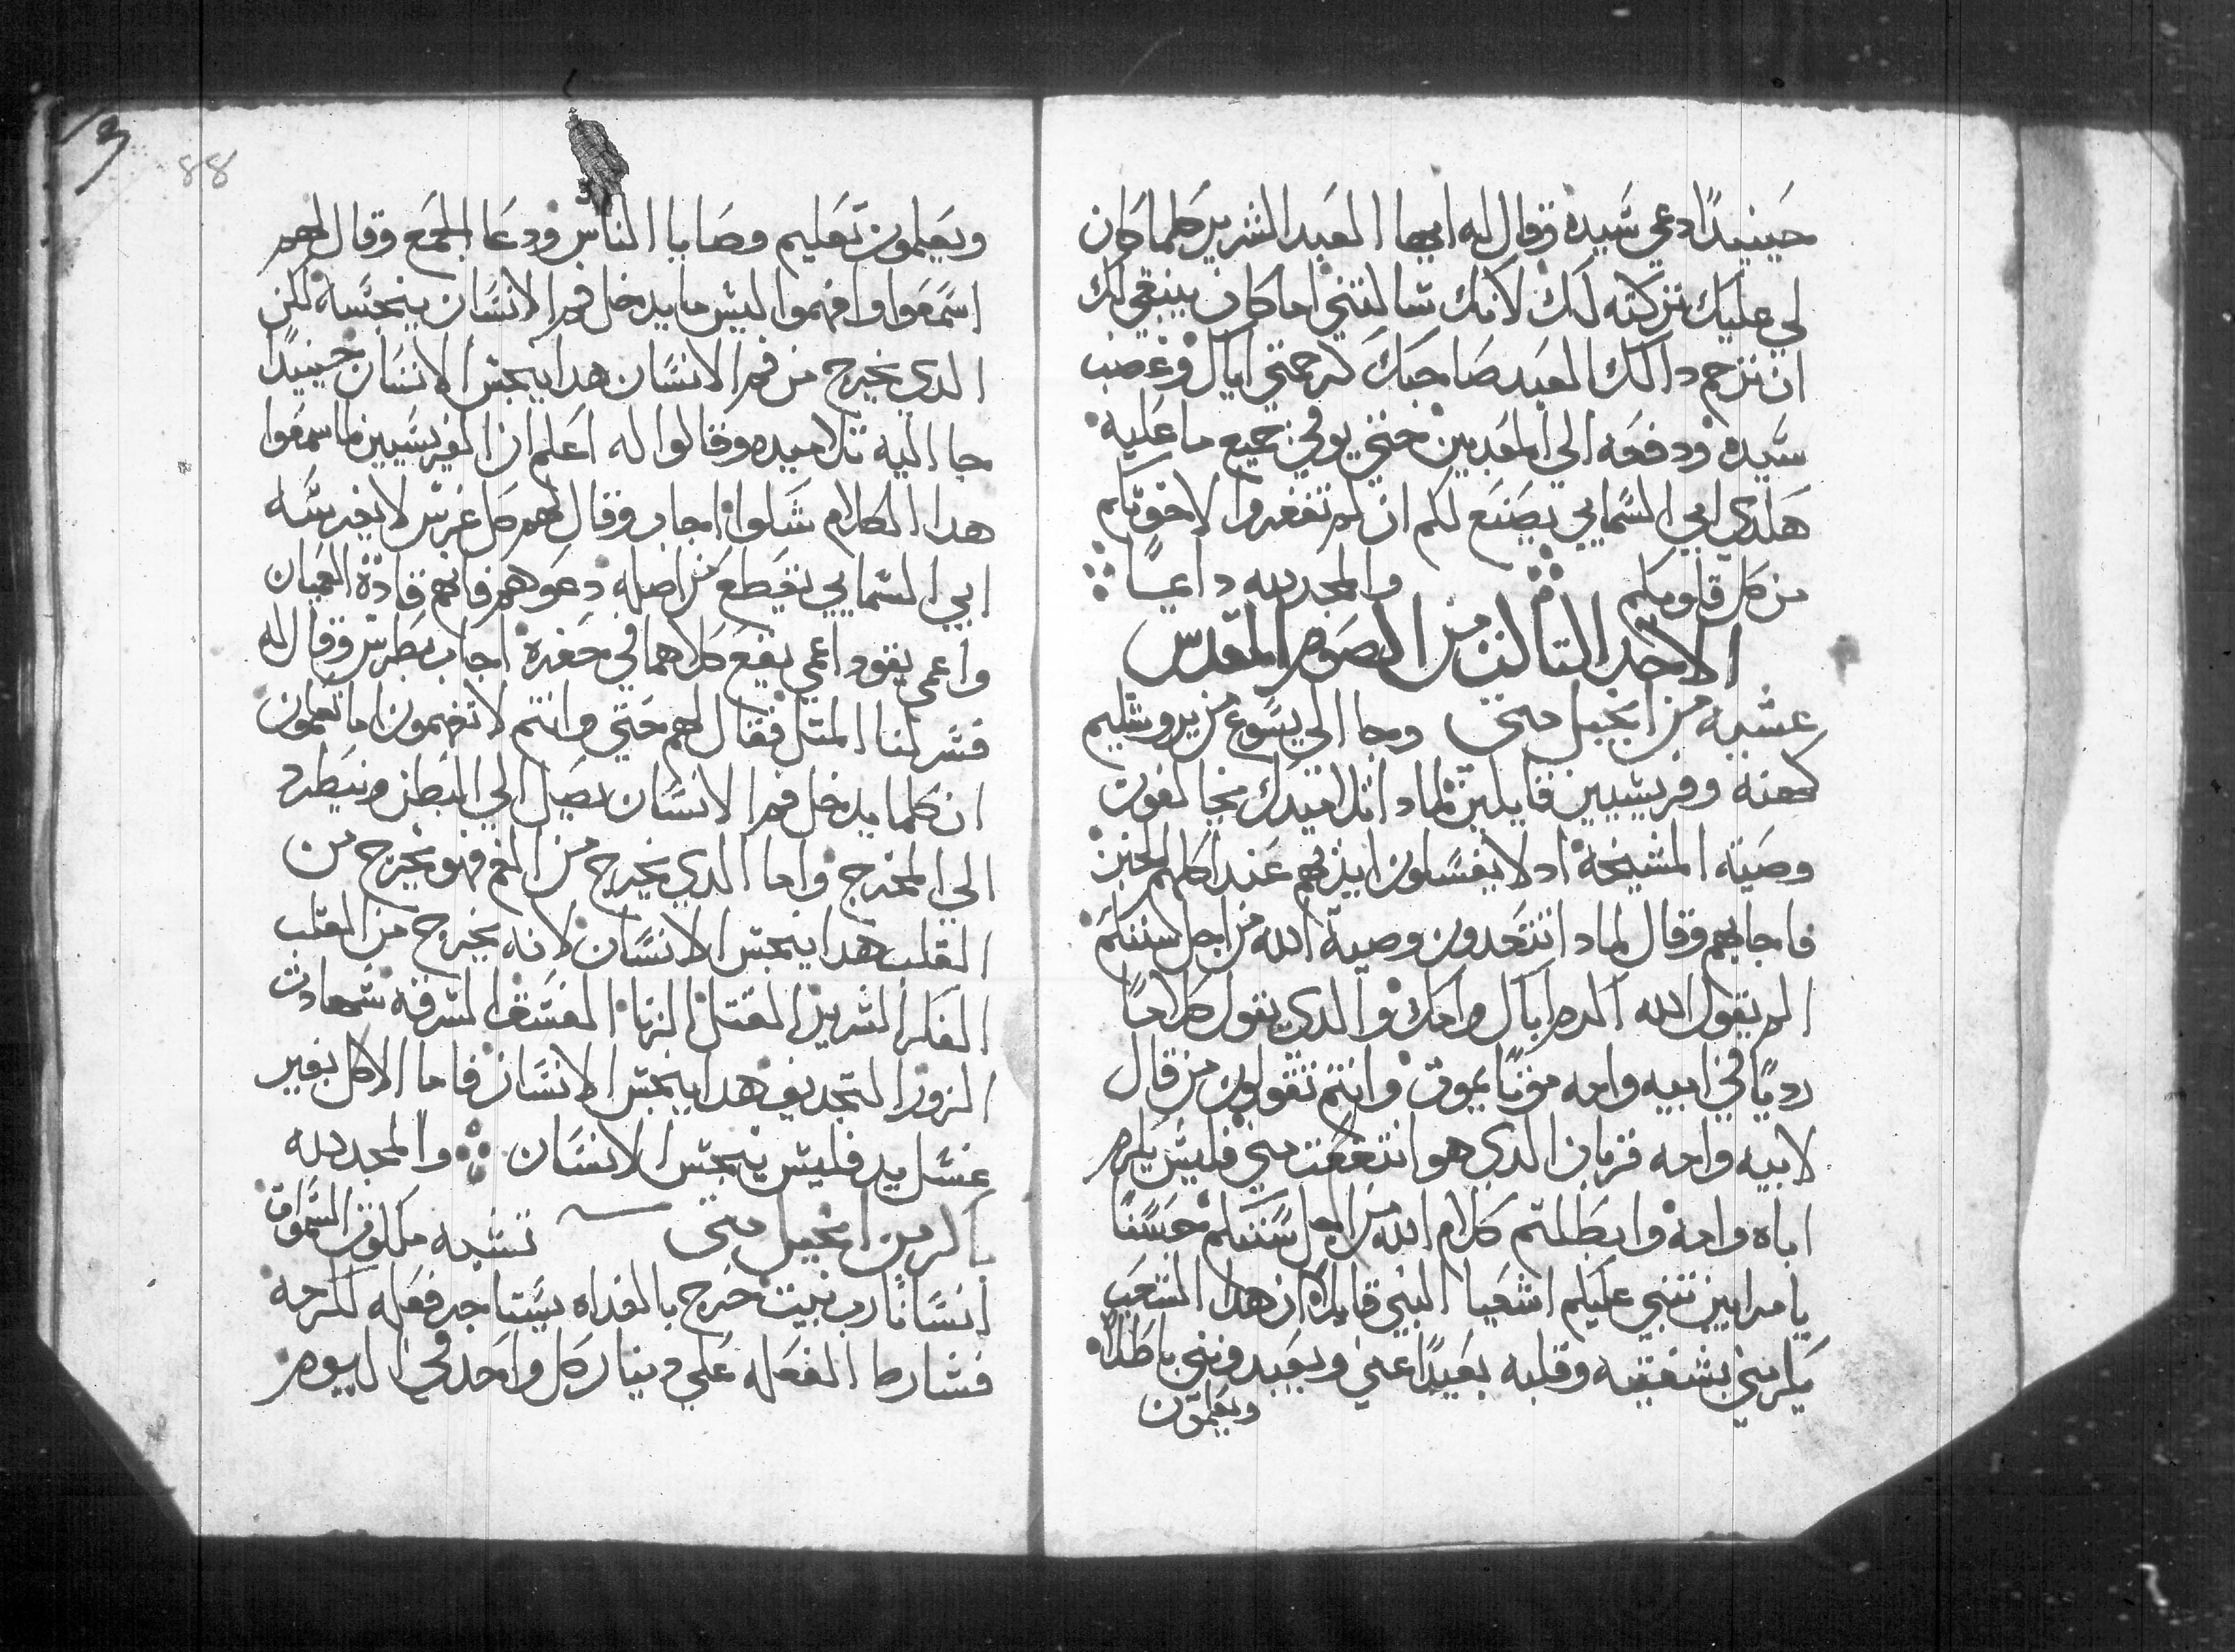 حينيدًا دعي سيده وقال له ايها العبد الشرير كلما كان
لي عليك تركته لك لانك سالتني اما كان ينبغي لك
ان ترحم دالك العبد صاحبك كرحمتي اياك وغضب
سيده ودفعه الي المعدبين حتي يوفي جميع ما عليه
هكدي ابي السمايي يصنع لكم ان لم تغفروا لاخوتكم
من كل قلوبكم والمجد لله دايمًا
الاحد التالت من الصوم المقدس
عشيه من انجيل متي وجا الي يسوع من يروشليم
كهنه وفريسيين قايلين لمادا تلاميدك يخالفون
وصية المشيخة اد لا يغسلون ايديهم عند اكلهم الخبز
فاجابهم وقال لمادا انتم تتعدون وصية الله من اجل سننكم
الم يقول الله اكرم اباك وامك والدي يقول كلامًا
رديًا في ابيه وامه موتًا يموت وانتم تقولون من قال
لابيه وامه قربان الدي هو انتفعت مني فليس يكرم
اباه وامه وابطلتم كلام الله من اجل سننكم حسنًا
يا مرايين تنبي عليكم اشعيا النبي قايلًا ان هدا الشعب
يكرمني بشفتيه وقلبه بعيدًا عني ويعبدونني باطلًا
ويعلمون
88
ويعلمون تعليم وصايا الناس ودعا الجمع وقال لهم
اسمعوا وافهموا ليس ما يدخل فم الانسان ينجسه لكن
الدي يخرج من فم الانسان هدا ينجس الانسان حينيدًا
جا اليه تلاميده وقالوا له اعلم ان الفريسيين لما سمعوا
هدا الكلام شكوا اجاب وقال لهم كل غرس لا يغرسه
ابي السمايي يقطع من اصله دعوهم فانهم قادة العميان
واعمى يقود اعمي يقع كلاهما في حفرة اجاب بطرس وقال له
فسر لنا المتل فقال لهم حتي وانتم لا تفهمون اما تعلمون
ان كلما يدخل فم الانسان يصل الي البطن وينطرد
الي المخرج واما الدي يخرج من الفم فهو يخرج من
القلب هدا ينجس الانسان لانه يخرج من القلب
الفكر الشرير القتل الزنا الفسق السرقه شهادت
الزور التجديف هدا ينجس الانسان فاما الاكل بغير
غسل يد فليس ينجس الانسان والمجد لله
باكر من انجيل متى تشبه ملكوت السموات
انسانًا رب بيت خرج بالغداه يستاجر فعله لكرمه
فشارط الفعله علي دينار كل واحد في اليوم